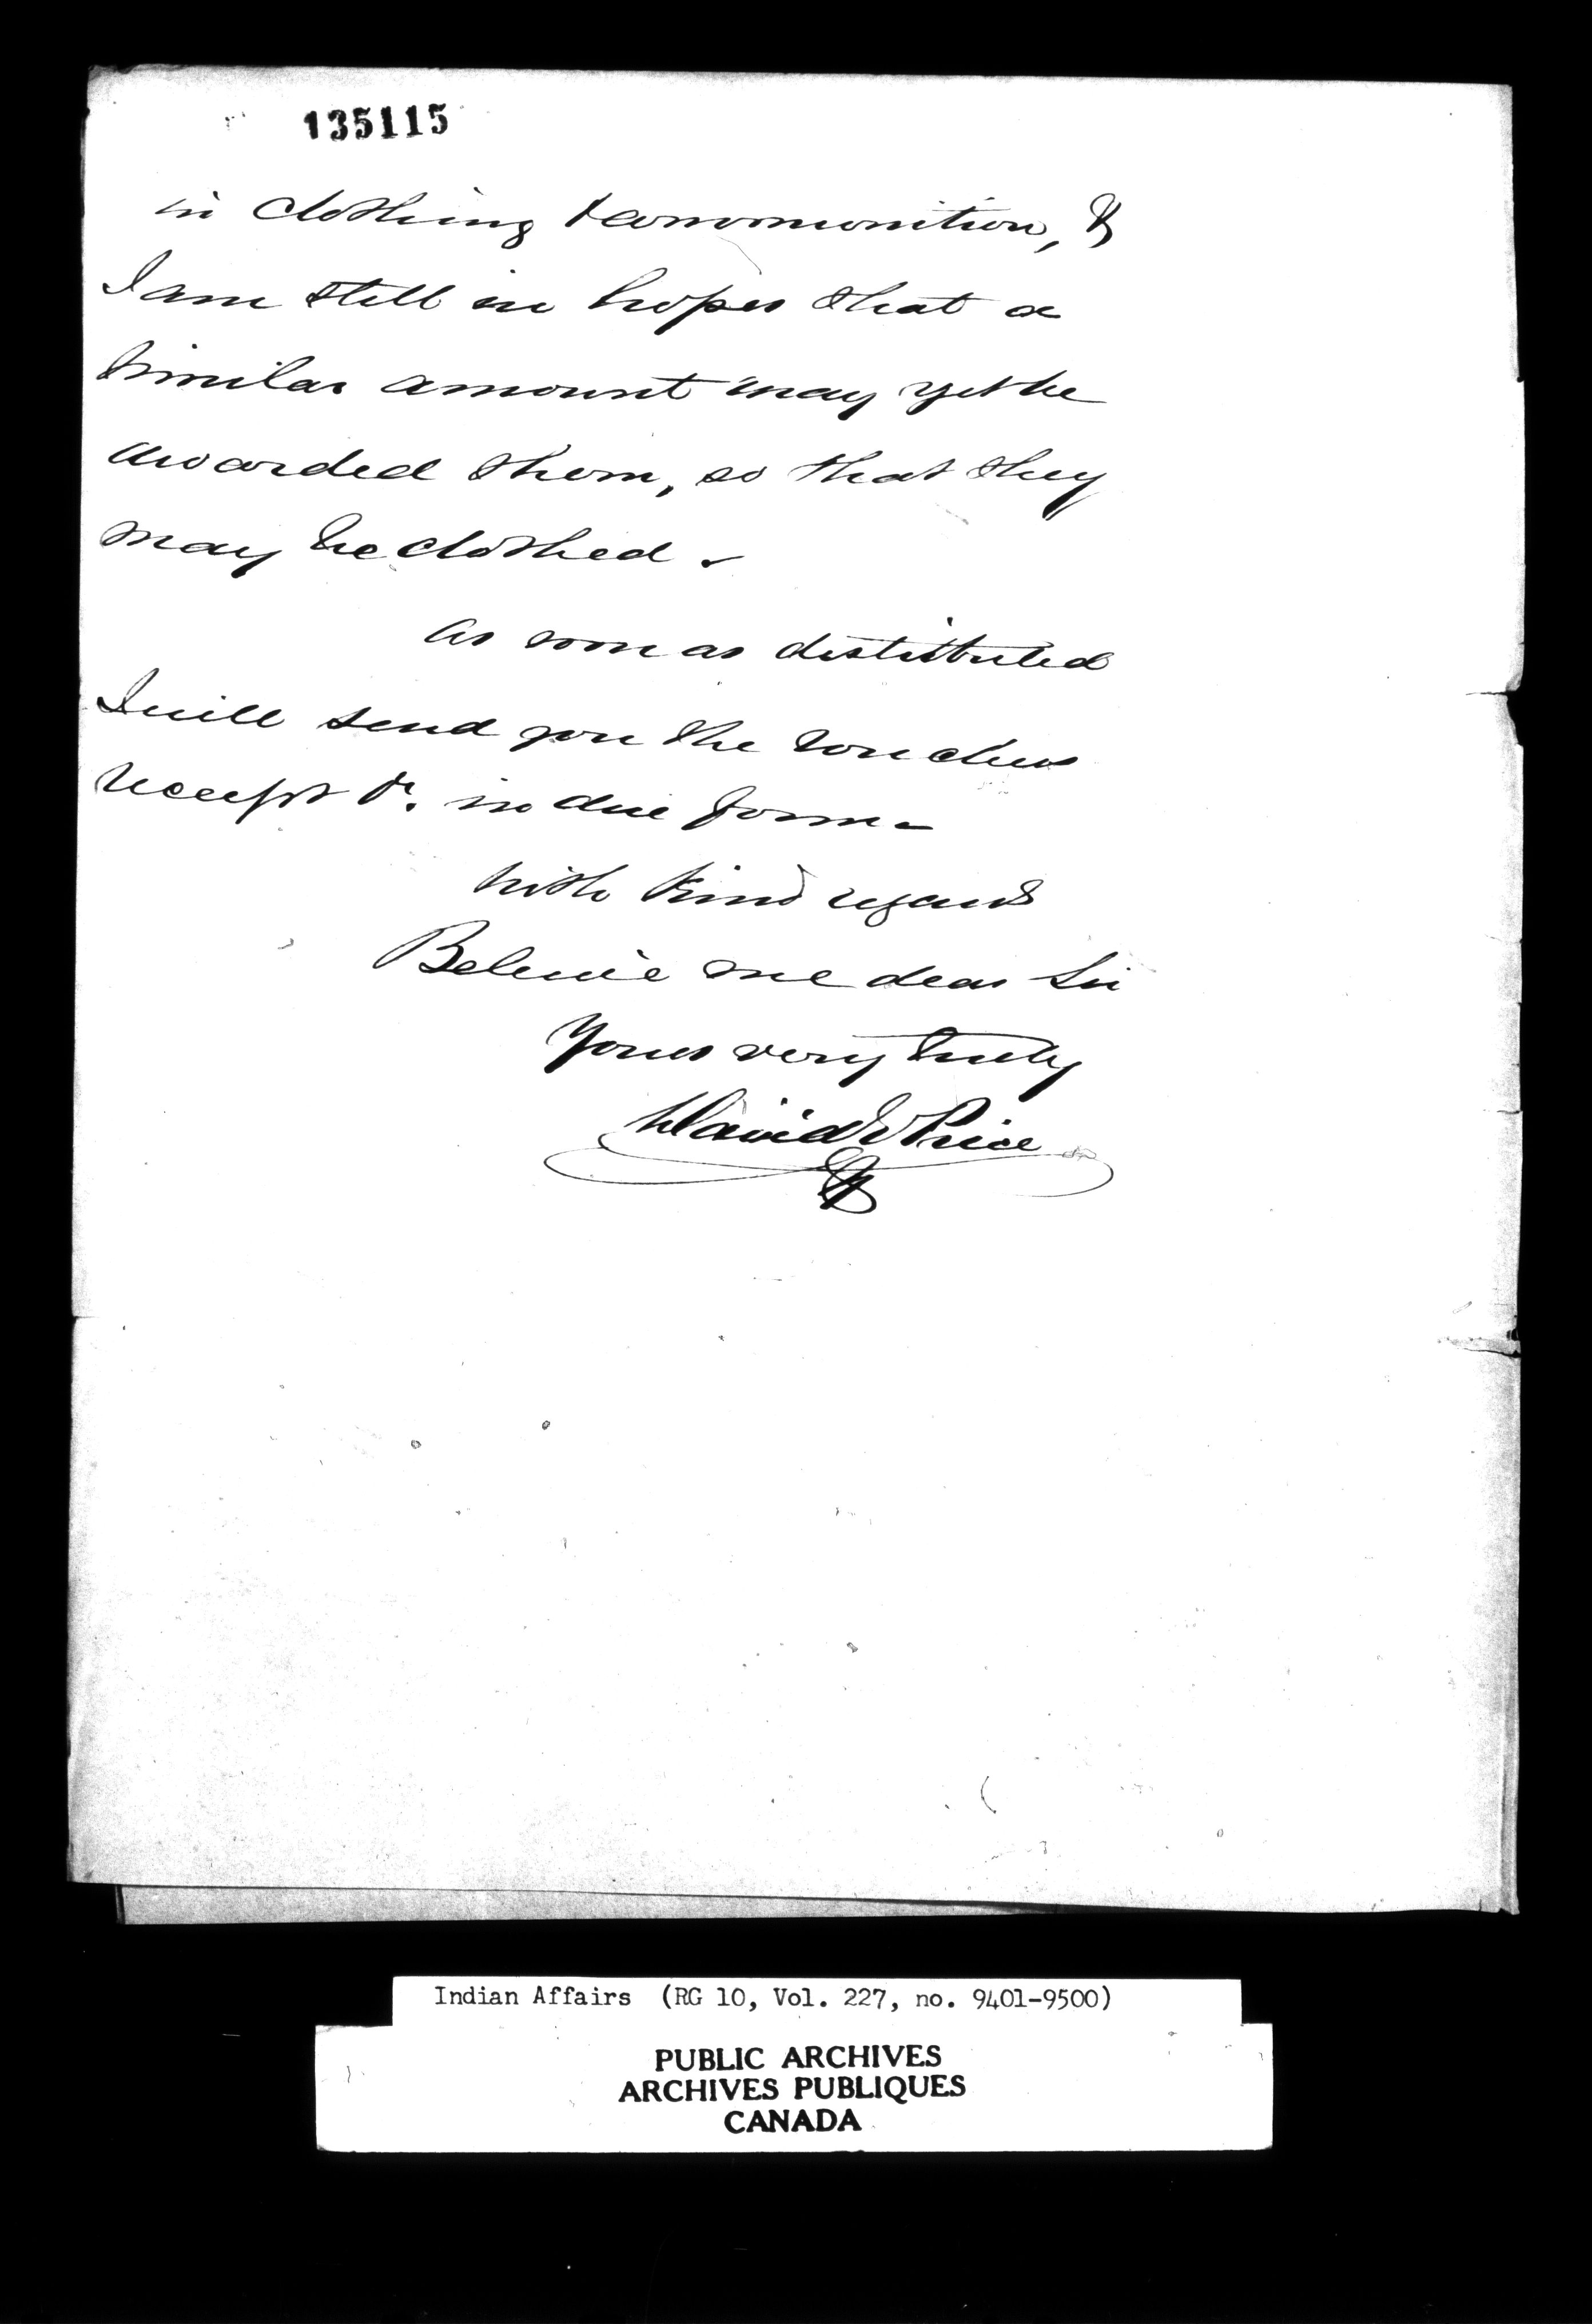 135115
in clothing & ammunition, &
I am still in hopes that a
similar amount may yet be
awarded them, so that they
may be clothed.
As soon as distributed
I will send you the vouchers
receipts &c. in due form -
With kind regards
Believe me dear Sir
Yours very truly
David E Price
Indian Affairs (RG 10, Vol. 227, no. 9401-9500)
PUBLIC ARCHIVES
ARCHIVES PUBLIQUES
CANADA